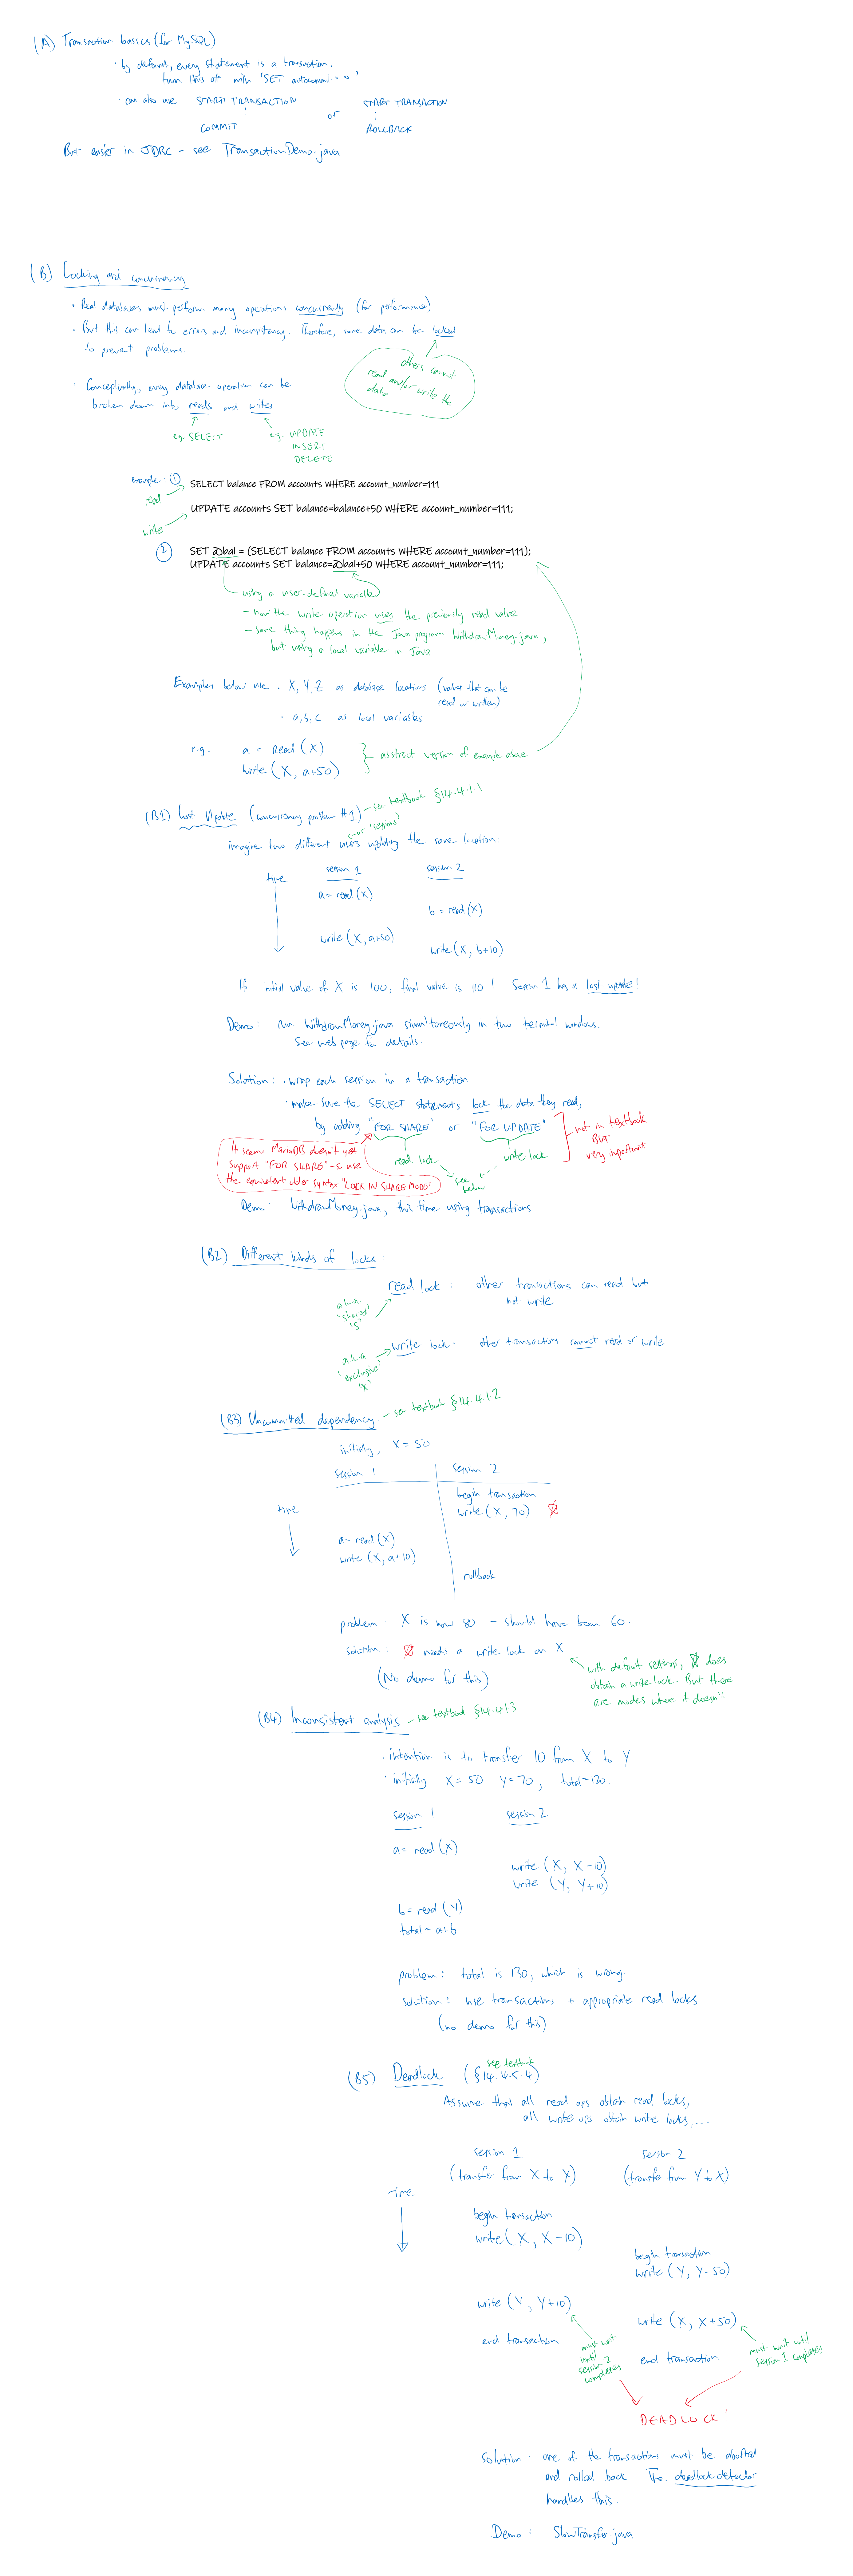 (A) Transaction basics (for MySQL)
· by default, every statement is a transaction.
turn this off with 'SET autocommit = 0'
· can also use START TRANSACTION
:
COMMIT
or
START TRANSACTION
:
ROLLBACK
But easier in JDBC - see TransactionDemo.java
(B) Locking and concurrency
· Real databases must perform many operations concurrently (for performance)
· But this can lead to errors and inconsistency. Therefore, some data can be locked
to prevent problems.
others cannot
read and/or write the
data
· Conceptually, every database operation can be
broken down into reads and writes
e.g. SELECT
e.g. UPDATE
INSERT
DELETE
example: ①
SELECT balance FROM accounts WHERE account_number=111
read
UPDATE accounts SET balance=balance+50 WHERE account_number=111;
write
② SET @bal = (SELECT balance FROM accounts WHERE account_number=111);
UPDATE accounts SET balance=@bal+50 WHERE account_number=111;
using a user-defined variable
- now the write operation uses the previously read value
- same thing happens in the Java program WithdrawMoney.java,
but using a local variable in Java
Examples below use · X, Y, Z as database locations (values that can be
read or written)
· a, b, c as local variables
e.g. a = read (X)
write (X, a+50)
} abstract version of example above
(B1) Lost Update (concurrency problem #1) - see textbook §14.4.1.1
or 'sessions'
imagine two different users updating the same location:
time
session 1
session 2
a = read (X)
b = read (X)
write (X, a+50)
write (X, b+10)
If initial value of X is 100, final value is 110! Session 1 has a lost update!
Demo: run WithdrawMoney.java simultaneously in two terminal windows.
See web page for details
Solution: · wrap each session in a transaction
· make sure the SELECT statements lock the data they read,
by adding "FOR SHARE" or "FOR UPDATE"
not in textbook
BUT
very important
It seems MariaDB doesn't yet
support "FOR SHARE" - so use
the equivalent older syntax "LOCK IN SHARE MODE"
read lock
write lock
see
below
Demo: WithdrawMoney.java, this time using transactions
(B2) Different kinds of locks
read lock: other transactions can read but
not write
a.k.a.
'shared'
'S'
write lock: other transactions cannot read or write
a.k.a
'exclusive'
'X'
(B3) Uncommitted dependency: - see textbook §14.4.1.2
initially, X = 50
session 1
session 2
time
begin transaction
write (X, 70)
a = read (X)
write (X, a+10)
rollback
problem: X is now 80 - should have been 60.
solution: needs a write lock on X
(No demo for this)
with default settings, does
obtain a write lock. But there
are modes where it doesn't
(B4) Inconsistent analysis - see textbook §14.4.1.3
· intention is to transfer 10 from X to Y
· initially X = 50 Y = 70, total = 120
session 1
session 2
a = read (X)
write (X, X-10)
write (Y, Y+10)
b = read (Y)
total = a+b
problem: total is 130, which is wrong.
solution: use transactions + appropriate read locks
(no demo for this)
(B5) Deadlock (§14.4.5.4)
see textbook
Assume that all read ops obtain read locks,
all write ops obtain write locks,...
session 1
(transfer from X to Y)
session 2
(transfer from Y to X)
time
begin transaction
write (X, X-10)
begin transaction
write (Y, Y-50)
write (Y, Y+10)
write (X, X+50)
end transaction
must wait
until
session 2
completes
end transaction
must wait until
session 1 completes
DEADLOCK!
Solution: one of the transactions must be aborted
and rolled back. The deadlock detector
handles this.
Demo: SlowTransfer.java